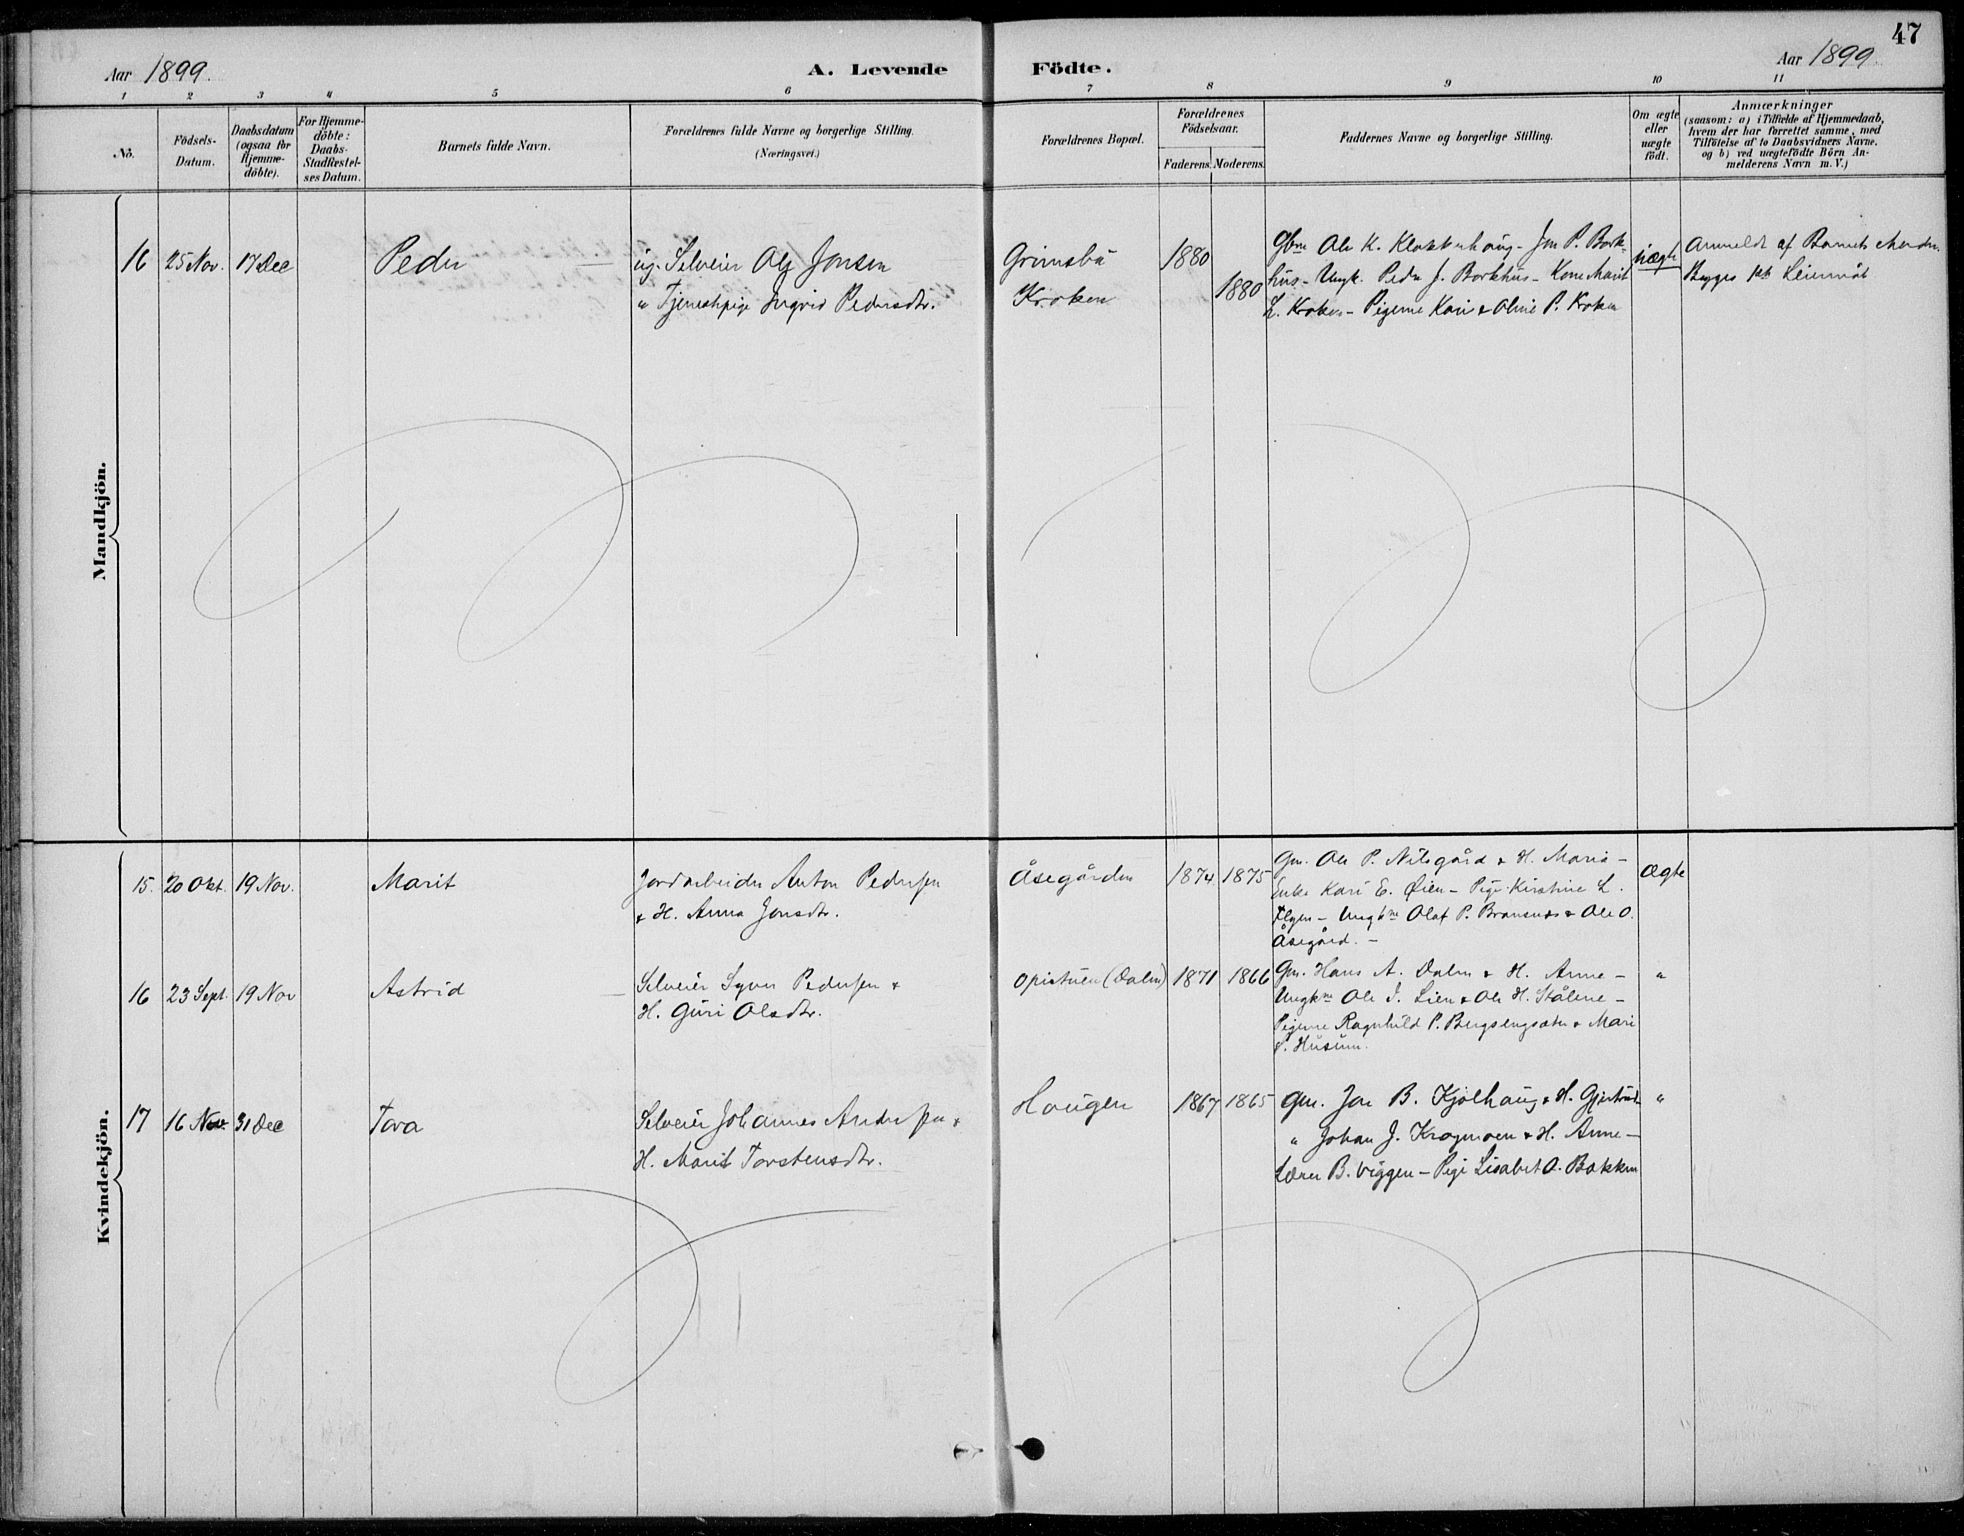 47
Aar 1899.
A. Levende
Födte.
Aar 1899.
1 2 3 4 5 6 7 8 9 10 11
No.
Födsels-
Datum.
Daabsdatum
(ogsaa for
Hjemme-
döbte).
For Hjemme-
döbte:
Daabs-
Stadfæstel-
ses Datum.
Barnets fulde Navn.
Forældrenes fulde Navne og borgerlige Stilling.
(Næringsvei.)
Forældrenes Bopæl.
Forældrenes
Födselsaar.
Faderens. Moderens.
Faddernes Navne og borgerlige Stilling.
Om ægte
eller
uægte
födt.
Anmærkninger
(saasom: a) i Tilfælde af Hjemmedaab,
hvem der har forrettet samme, med
Tilföielse af to Daabsvidners Navne,
og b) ved uægtefödte Börn An-
melderens Navn m. V.)
Mandkjön.
16 25 Nov. 17 Dec
Peder
ug. Selveier Alf Jonsen
" Tjenestpige Ingrid Pedersdtr.
Grimsbu
Kroken
1880
1880
Gbrn Ole K. Klokkerhaug - Jon P. Bork-
hus - Ungk. Peder J. Borkhus - Kone Marit
L. Kroken - Pigerne Kari & Oline P. Kroken
uægte
Anmeldt af Barnets Moder.
Kvindekjön.
15. 20 Okt. 19 Nov.
Marit
Jordarbeider Anton Pedersen
& H. Anna Jonsdtr.
Åsegården
1874 1875
Gm. Ole P. Nilsgård & H. Maria -
Enke Kari E. Øien - Pige Kirstine L.
- Ungkne Olaf P. Bransnæs & Ole O.
Åsegård. -
Ægte
16 23 Sept. 19 Nov
Astrid
Selveier Syver Pedersen &
H. Guri Olsdtr.
Opistuen (Dalen)
1871 1866
Gm. Hans A. Dalen & H. Anne -
Ungkne Ole J. Lien & Ole H. Stålene -
Pigerne Ragnhild P. Bergsengsæter & Mari
Husum.
"
17 16 Nov 31 Dec
Tora
Selveier Johannes Andersen &
H. Marit Torstensdtr.
Haugen
1867 1865
Gm. Jon B. Kjølhaug & H. Gjertrud
" Johan J. Kragmoen & H. Anne -
Lærer B. Viggen - Pige Lisabet O. Bakken
"